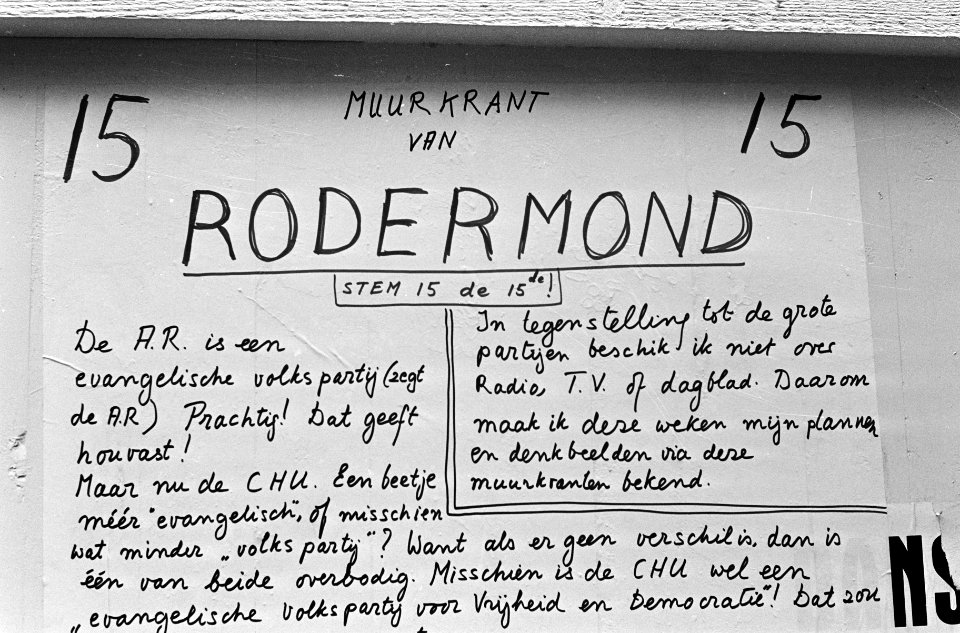 15 MUURKRANT 15
VAN
RODERMOND
STEM 15 de 15de!
De A.R. is een
evangelische volkspartij (zegt
de A.R.) Prachtig! Dat geeft
houvast!
Maar nu de CHU. Een beetje
méér "evangelisch", of misschien
In tegenstelling tot de grote
partijen beschik ik niet over
Radio, T.V. of dagblad. Daarom
maak ik deze weken mijn plannen
en denkbeelden via deze
muurkranten bekend.
wat minder „volkspartij"? Want als er geen verschil is, dan is
één van beide overbodig. Misschien is de CHU wel een
„evangelische volkspartij voor Vrijheid en Democratie"! Dat zou
NS